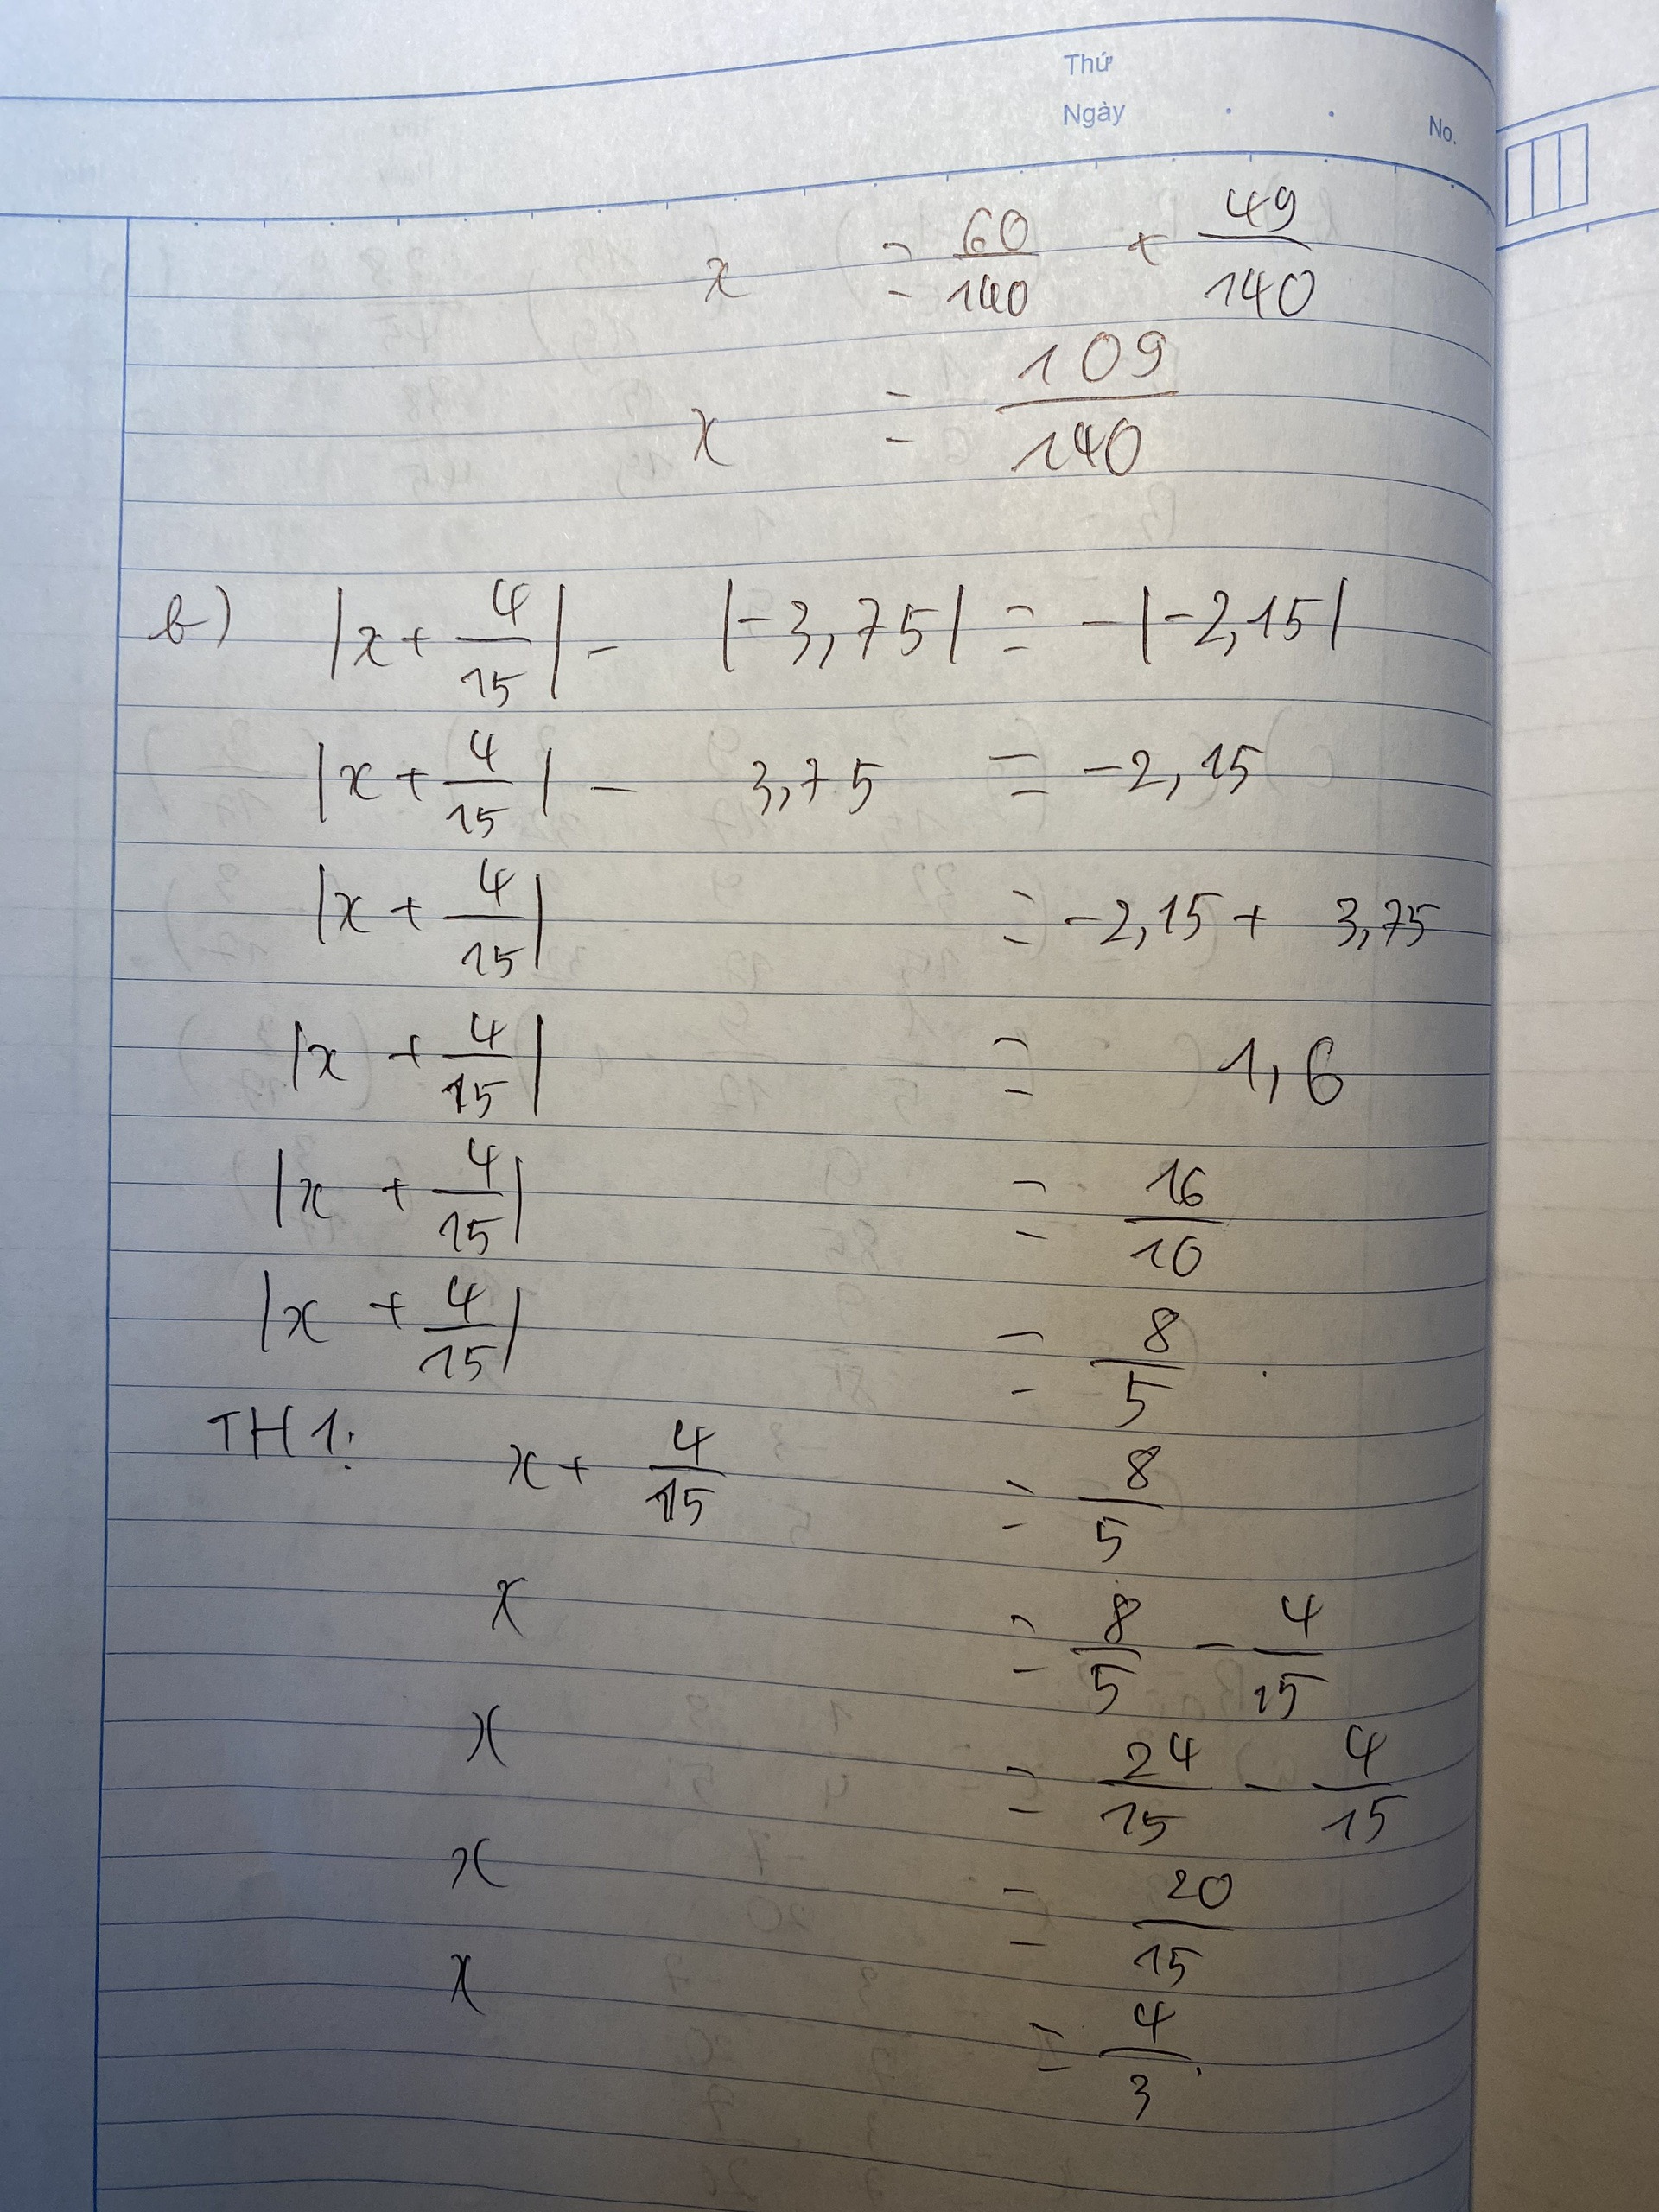 Thứ
Ngày
No.
x = 60/140 + 49/140
x = 109/140
b) |x + 4/15| - |-3,75| = -|-2,15|
|x + 4/15| - 3,75 = -2,15
|x + 4/15| = -2,15 + 3,75
|x + 4/15| = 1,6
|x + 4/15| = 16/10
|x + 4/15| = 8/5
TH1: x + 4/15 = 8/5
x = 8/5 - 4/15
x = 24/15 - 4/15
x = 20/15
x = 4/3